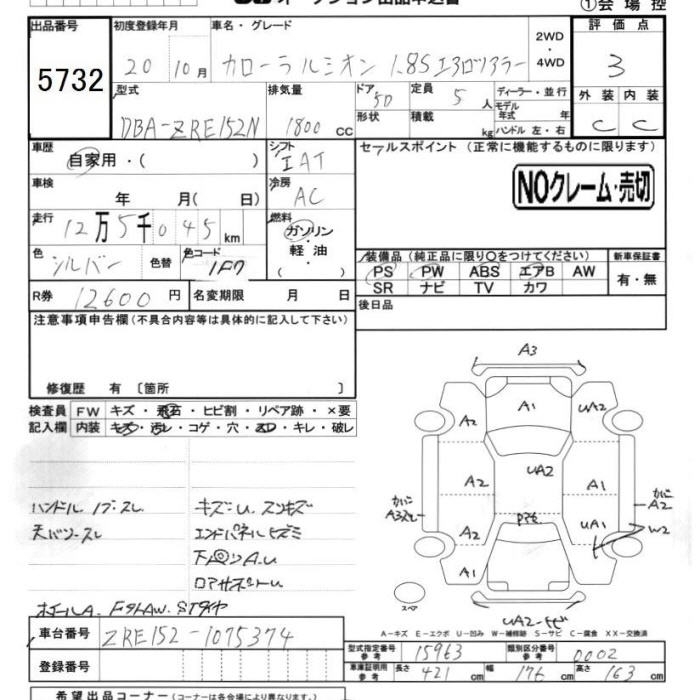 ①会場控
出品番号 初度登録年月 車名・グレード 評価点
5732
20 10月 カローラルミオン 1.8Sエアロツアラー 2WD・4WD 3
型式 排気量 ドア 5D 定員 5人 ディーラー・並行 外装 内装
DBA-ZRE152N 1800cc 形状 積載 kg モデル年式 年 ハンドル 左・右 C C
車歴 シフト セールスポイント (正常に機能するものに限ります)
自家用・( ) IAT
車検 冷房 NOクレーム・売切
年 月( 日) AC
走行 燃料
12万5千045km ガソリン・軽油
色 シルバー 色替 色コード 1F7 装備品 (純正品に限り○をつけてください) 新車保証書
PS PW ABS エアB AW 有・無
SR ナビ TV カワ
R券 12600円 名変期限 月 日 後日品
注意事項申告欄 (不具合内容等は具体的に記入して下さい)
修復歴 有 〔箇所 〕
検査員記入欄 FW キズ・飛石・ヒビ割・リペア跡・×要
内装 キズ・汚レ・コゲ・穴・スレ・キレ・破レ
A3
A1
A2 UA2
A2 UA2 A1
カバー A2
A2 UA1 W2
A1
スペア
ハンドル キズ・U
エンドパネルヒズミ
A-キズ E-エクボ U-凹み W-補修跡 S-サビ C-腐食 XX-交換済
車台番号 ZRE152-1075374
登録番号
型式指定番号 参考 15963 類別区分番号 参考 0002
車庫証明用 参考 長さ 421cm 幅 176cm 高さ 163cm
希望出品コーナー (コーナーは各会場により異なります。)